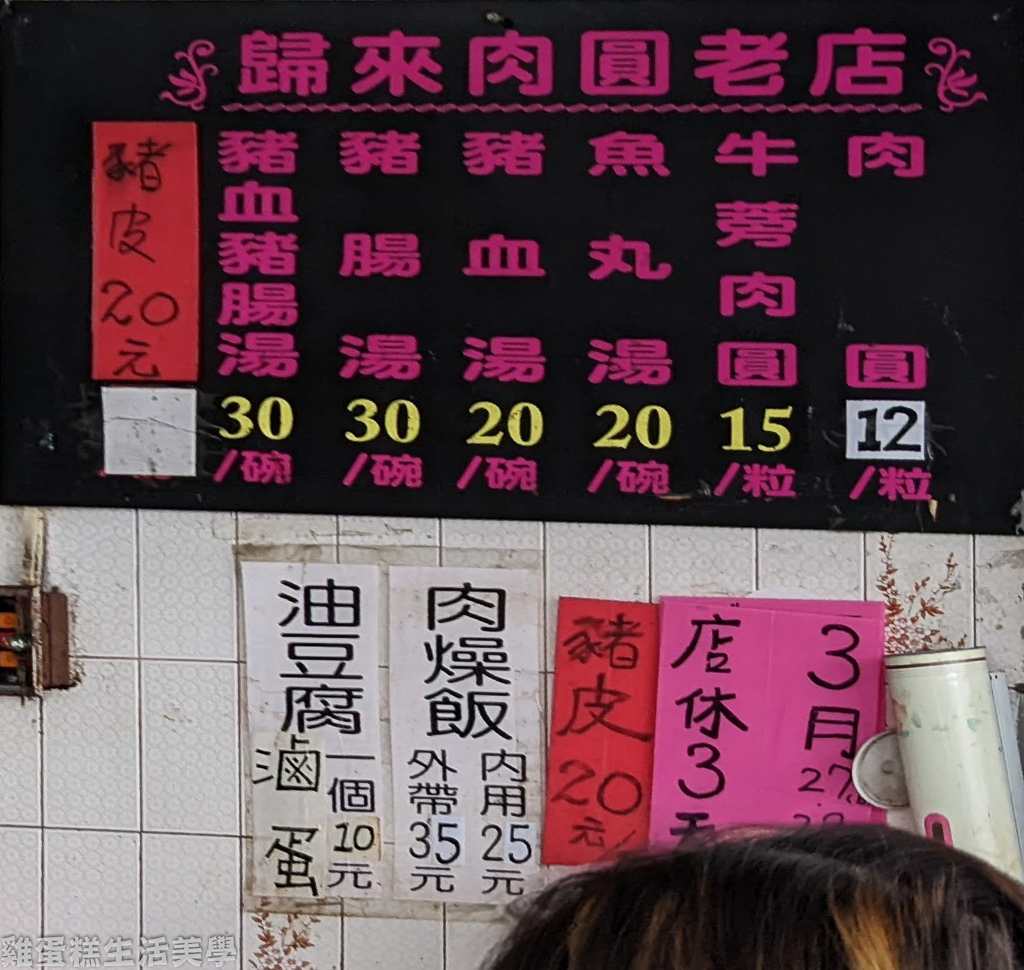 歸來肉圓老店
肉圓
12
/粒
牛蒡肉圓
15
/粒
魚丸湯
20
/碗
豬血湯
20
/碗
豬腸湯
30
/碗
豬血豬腸湯
30
/碗
豬皮20元
油豆腐
滷蛋
一個10元
肉燥飯
內用25元
外帶35元
豬皮20元
3月
27
店休3天
雞蛋糕生活美學